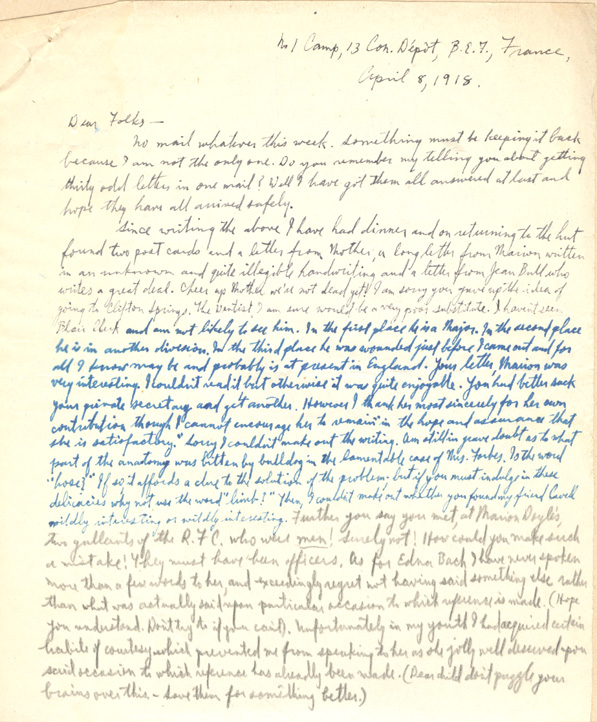 No 1 Camp, 13 Con. Dépôt, B.E.F., France,
April 8, 1918.
Dear Folks —
No mail whatever this week. Something must be keeping it back
because I am not the only one. Do you remember my telling you about getting
thirty odd letters in one mail? Well I have got them all answered at last and
hope they have all arrived safely.
Since writing the above I have had dinner and on returning to the hut
found two post cards and a letter from Mother, a long letter from Marion written
in an unknown and quite illegible handwriting and a letter from Jean Bull who
writes a great deal. Cheer up Mother we're not dead yet! I am sorry you gave up the idea of
going to Clifton Springs. The dentist I am sure would be a very poor substitute. I haven't seen
Blair and am not likely to see him. In the first place he is a Major. In the second place
he is in another division. In the third place he was wounded just before I came out and for
all I know may be and probably is at present in England. Your letter, Marion was
very interesting. I couldn't read it but otherwise it was quite enjoyable. You had better sack
your private secretary and get another. However I thank her most sincerely for her own
contribution though I cannot encourage her to remain "in the hope and assurance that
she is satisfactory." Sorry I couldn't make out the writing. Am still in grave doubt as to what
part of the anatomy was bitten by bulldog in the lamentable case of Mrs. Forbes. Is the word
"hose?" If so it affords a clue to the solution of the problem, but if you must indulge in these
delicacies why not use the word "limb?" Then, I couldn't make out whether you found my friend Cavell
mildly interesting or wildly interesting. Further you say you met, at Marion Doyle's,
two gallants of the R.F.C. who were men! Surely not! How could you make such
a mistake! They must have been officers. As for Edna Bach I have never spoken
more than a few words to her, and exceedingly regret not having said something else rather
than what was actually said upon particular occasion to which reference is made. (Hope
you understand. Don't try to if you can't). Unfortunately in my youth I had acquired certain
habits of courtesy which prevented me from speaking to her as she jolly well deserved upon
said occasion to which reference has already been made. (Dear child don't puzzle your
brains over this - save them for something better.)